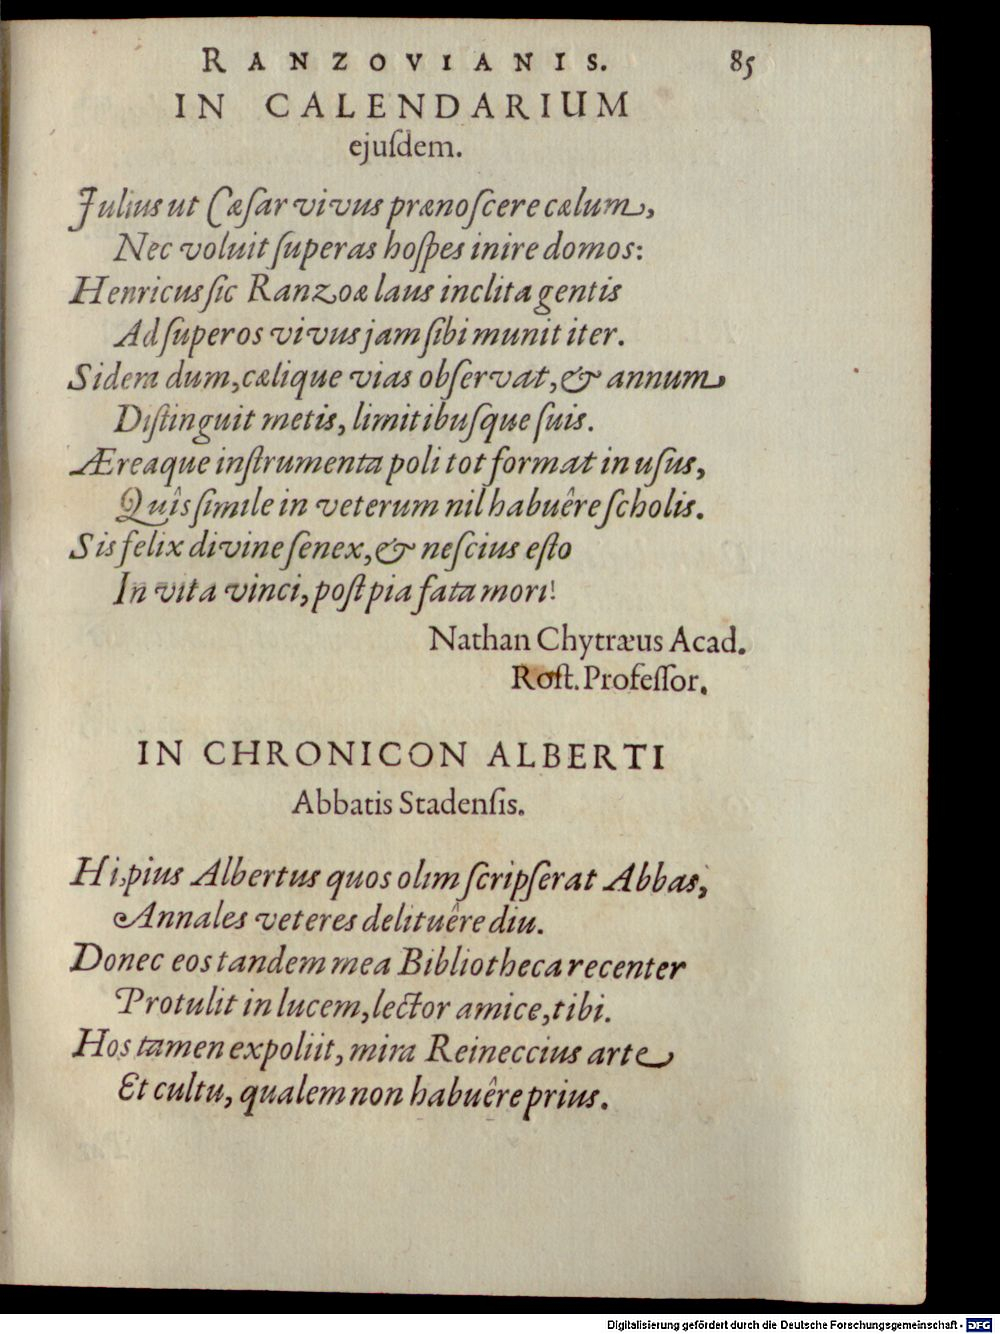 RANZOVIANIS. 85
IN CALENDARIUM
ejuſdem.
Julius ut Cæſar vivus prænoſcere cælum,
Nec voluit ſuperas hoſpes inire domos:
Henricus ſic Ranzoæ laus inclita gentis
Ad ſuperos vivus jam ſibi munit iter.
Sidera dum, cælique vias obſervat, & annum
Diſtinguit metis, limitibuſque ſuis.
Æreaque inſtrumenta poli tot format in uſus,
Quîs ſimile in veterum nil habuêre ſcholis.
Sis felix divine ſenex, & neſcius eſto
In vita vinci, poſt pia fata mori!
Nathan Chytræus Acad.
Roſt. Profeſſor.
IN CHRONICON ALBERTI
Abbatis Stadenſis.
Hi, pius Albertus quos olim ſcripſerat Abbas,
Annales veteres delituêre diu.
Donec eos tandem mea Bibliotheca recenter
Protulit in lucem, lector amice, tibi.
Hos tamen expoliit, mira Reineccius arte
Et cultu, qualem non habuêre prius.
Digitalisierung gefördert durch die Deutsche Forschungsgemeinschaft - DFG